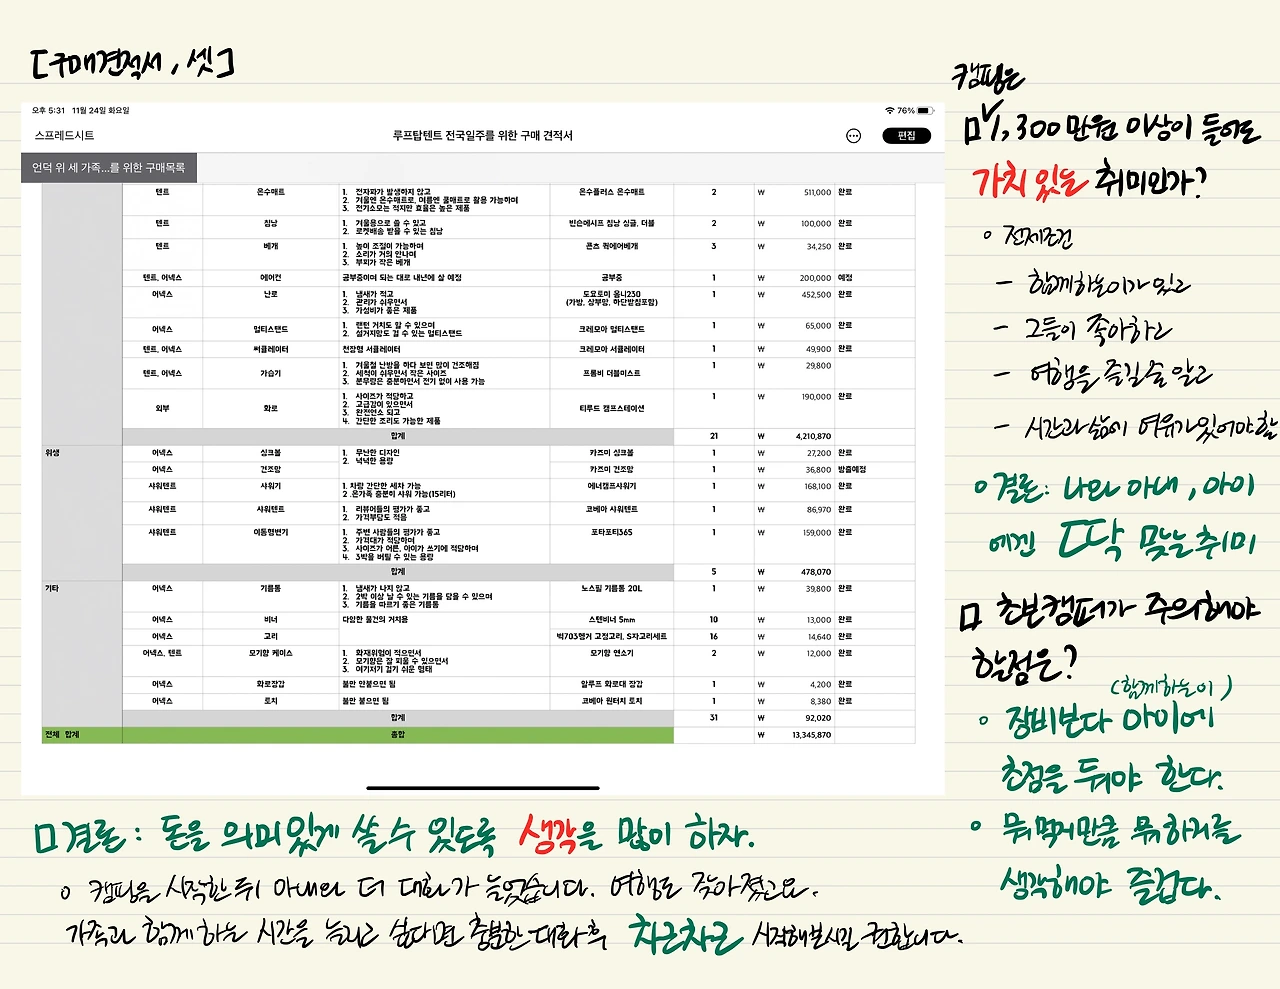 [구매견적서, 셋]
오후 5:31 11월 24일 화요일
76%
스프레드시트
루프탑텐트 전국일주를 위한 구매 견적서
편집
언덕 위 세 가족...를 위한 구매목록
텐트 온수매트 1. 전자파가 발생하지 않고 온수플러스 온수매트 2 ₩ 511,000 완료
2. 겨울엔 온수매트로, 여름엔 쿨매트로 활용 가능하며
3. 전기소모는 적지만 효율은 높은 제품
텐트 침낭 1. 겨울용으로 쓸 수 있고 빈슨메시프 침낭 싱글, 더블 2 ₩ 100,000 완료
2. 로켓배송 받을 수 있는 침낭
텐트 베개 1. 높이 조절이 가능하며 콘츠 퀵에어베개 3 ₩ 34,250 완료
2. 소리가 거의 안나며
3. 부피가 작은 베개
텐트, 어넥스 에어컨 공부중이며 되는 대로 내년에 살 예정 공부중 1 ₩ 200,000 예정
어넥스 난로 1. 냄새가 적고 도요토미 옴니230 1 ₩ 452,500 완료
2. 관리가 쉬우면서 (가방, 상부망, 하단받침포함)
3. 가성비가 좋은 제품
어넥스 멀티스탠드 1. 랜턴 거치도 할 수 있으며 크레모아 멀티스탠드 1 ₩ 65,000 완료
2. 설거지망도 걸 수 있는 멀티스탠드
텐트, 어넥스 써큘레이터 천장형 서큘레이터 크레모아 서큘레이터 1 ₩ 49,900 완료
텐트, 어넥스 가습기 1. 겨울철 난방을 하다 보면 많이 건조해짐 프롬비 더블미스트 1 ₩ 29,800
2. 세척이 쉬우면서 작은 사이즈
3. 분무량은 충분하면서 전기 없이 사용 가능
외부 화로 1. 사이즈가 적당하고 티루드 캠프스테이션 1 ₩ 190,000 완료
2. 고급감이 있으면서
3. 완전연소 되고
4. 간단한 조리도 가능한 제품
합계 21 ₩ 4,210,870
위생 어넥스 싱크볼 1. 무난한 디자인 카즈미 싱크볼 1 ₩ 27,200 완료
2. 넉넉한 용량
어넥스 건조망 카즈미 건조망 1 ₩ 36,800 방출예정
샤워텐트 샤워기 1. 차량 간단한 세차 가능 에너캠프샤워기 1 ₩ 168,100 완료
2 .온가족 충분히 샤워 가능(15리터)
샤워텐트 샤워텐트 1. 리뷰어들의 평가가 좋고 코베아 샤워텐트 1 ₩ 86,970 완료
2. 가격부담도 적음
샤워텐트 이동형변기 1. 주변 사람들의 평가가 좋고 포타포티365 1 ₩ 159,000 완료
2. 가격대가 적당하며
3. 사이즈가 어른, 아이가 쓰기에 적당하며
4. 3박을 버틸 수 있는 용량
합계 5 ₩ 478,070
기타 어넥스 기름통 1. 냄새가 나지 않고 노스필 기름통 20L 1 ₩ 39,800 완료
2. 2박 이상 날 수 있는 기름을 담을 수 있으며
3. 기름을 따르기 좋은 기름통
어넥스 비너 다양한 물건의 거치용 스텐비너 5mm 10 ₩ 13,000 완료
어넥스 고리 빅703행거 고정고리, S자고리세트 16 ₩ 14,640 완료
어넥스, 텐트 모기향 케이스 1. 화재위험이 적으면서 모기향 연소기 2 ₩ 12,000 완료
2. 모기향은 잘 피울 수 있으면서
3. 여기저기 걸기 쉬운 형태
어넥스 화로장갑 불만 안붙으면 됨 알루프 화로대 장갑 1 ₩ 4,200 완료
어넥스 토치 불만 붙으면 됨 코베아 원터치 토치 1 ₩ 8,380 완료
합계 31 ₩ 92,020
전체 합계 총합 ₩ 13,345,870
캠핑은
1,300만원 이상이 들어도
가치 있는 취미인가?
전제조건
- 함께하는이가 있고
- 그들이 좋아하고
- 여행을 즐길줄 알고
- 시간과 삶에 여유가있어야할
결론: 나와 아내, 아이
에겐 딱 맞는 취미
초보캠퍼가 주의해야
할점은?
(함께하는이)
장비보다 아이에
초점을 둬야 한다.
뭐먹지만큼 뭐하지를
생각해야 즐겁다.
결론: 돈을 의미있게 쓸 수 있도록 생각을 많이 하자.
캠핑을 시작한 뒤 아내와 더 대화가 늘었습니다. 여행도 잦아졌고요.
가족과 함께하는 시간을 늘리고 싶다면 충분한 대화후 차근차근 시작해보시길 권합니다.